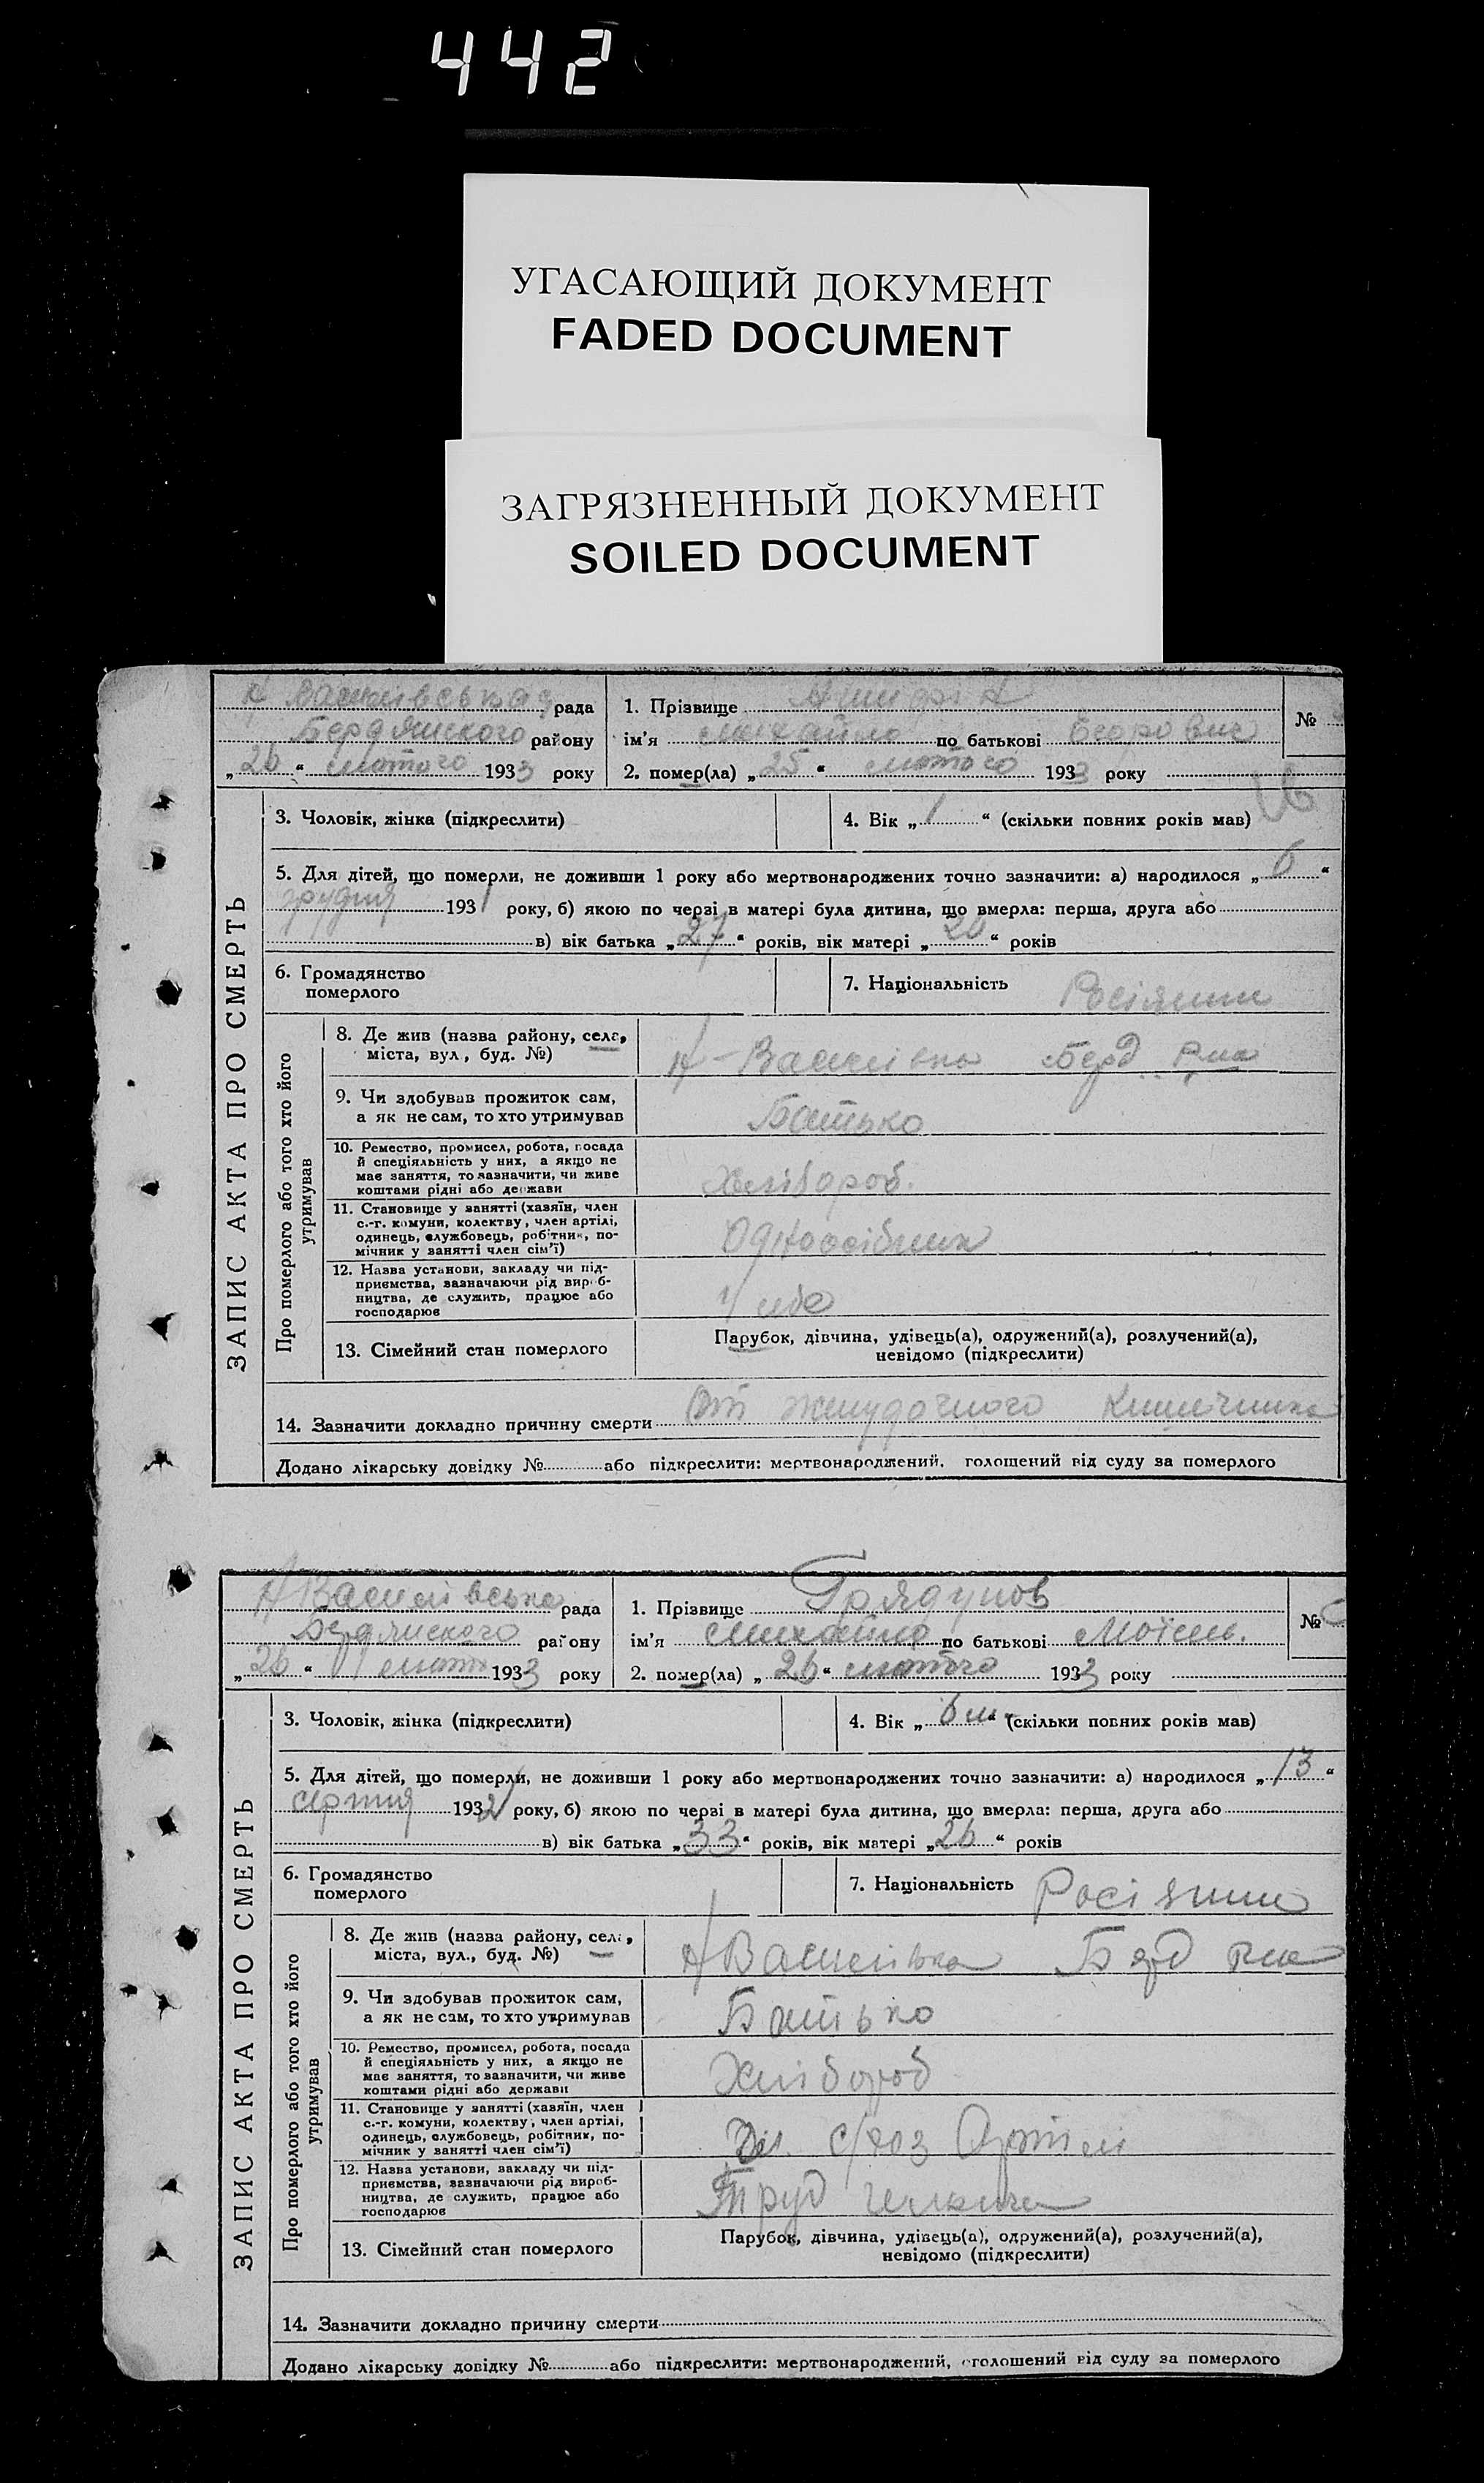 442
УГАСАЮЩИЙ ДОКУМЕНТ
FADED DOCUMENT
ЗАГРЯЗНЕННЫЙ ДОКУМЕНТ
SOILED DOCUMENT
ЗАПИС АКТА ПРО СМЕРТЬ
рада
Бердянского району
„26“ лютого 1933 року
1. Прізвище
№
ім'я Михайло по батькові Егорович
2. помер(ла) „25“ лютого 1933 року
3. Чоловік, жінка (підкреслити)
4. Вік „1“ (скільки повних років мав)
5. Для дітей, що померли, не доживши 1 року або мертвонароджених точно зазначити: а) народилося „6“
грудня 1931 року, б) якою по черзі в матері була дитина, що вмерла: перша, друга або
в) вік батька „27“ років, вік матері „“ років
6. Громадянство
померлого
7. Національність Росіянин
Про померлого або того хто його
утримував
8. Де жив (назва району, села,
міста, вул., буд. №)
Н-Василівка Берд р-на
9. Чи здобував прожиток сам,
а як не сам, то хто утримував
Батько
10. Ремество, промисел, робота, посада
й спеціяльність у них, а якщо не
має заняття, то зазначити, чи живе
коштами рідні або держави
Хлібороб.
11. Становище у занятті (хазяїн, член
с.-г. комуни, колективу, член артілі,
одинець, службовець, робітник, по-
мічник у занятті член сім'ї)
Одноосібник
12. Назва установи, закладу чи під-
приємства, зазначаючи рід вироб-
ництва, де служить, працює або
господарює
У себе
13. Сімейний стан померлого
Парубок, дівчина, удівець(а), одружений(а), розлучений(а),
невідомо (підкреслити)
14. Зазначити докладно причину смерти От желудочного кишечника
Додано лікарську довідку № або підкреслити: мертвонароджений, голошений від суду за померлого
ЗАПИС АКТА ПРО СМЕРТЬ
Н Василівська рада
Бердянского району
„26“ лютого 1933 року
1. Прізвище Грядунов
№
ім'я Михайло по батькові Моісеїв.
2. помер(ла) „26“ лютого 1933 року
3. Чоловік, жінка (підкреслити)
4. Вік „6 м“ (скільки повних років мав)
5. Для дітей, що померли, не доживши 1 року або мертвонароджених точно зазначити: а) народилося „13“
серпня 1932 року, б) якою по черзі в матері була дитина, що вмерла: перша, друга або
в) вік батька „33“ років, вік матері „26“ років
6. Громадянство
померлого
7. Національність Росіянин
Про померлого або того хто його
утримував
8. Де жив (назва району, села,
міста, вул., буд. №)
Н Василівка Берд р-на
9. Чи здобував прожиток сам,
а як не сам, то хто утримував
Батько
10. Ремество, промисел, робота, посада
й спеціяльність у них, а якщо не
має заняття, то зазначити, чи живе
коштами рідні або держави
Хлібороб
11. Становище у занятті (хазяїн, член
с.-г. комуни, колективу, член артілі,
одинець, службовець, робітник, по-
мічник у занятті член сім'ї)
Чл. с/гоз Артілі
12. Назва установи, закладу чи під-
приємства, зазначаючи рід вироб-
ництва, де служить, працює або
господарює
Труд
13. Сімейний стан померлого
Парубок, дівчина, удівець(а), одружений(а), розлучений(а),
невідомо (підкреслити)
14. Зазначити докладно причину смерти
Додано лікарську довідку № або підкреслити: мертвонароджений, оголошений від суду за померлого